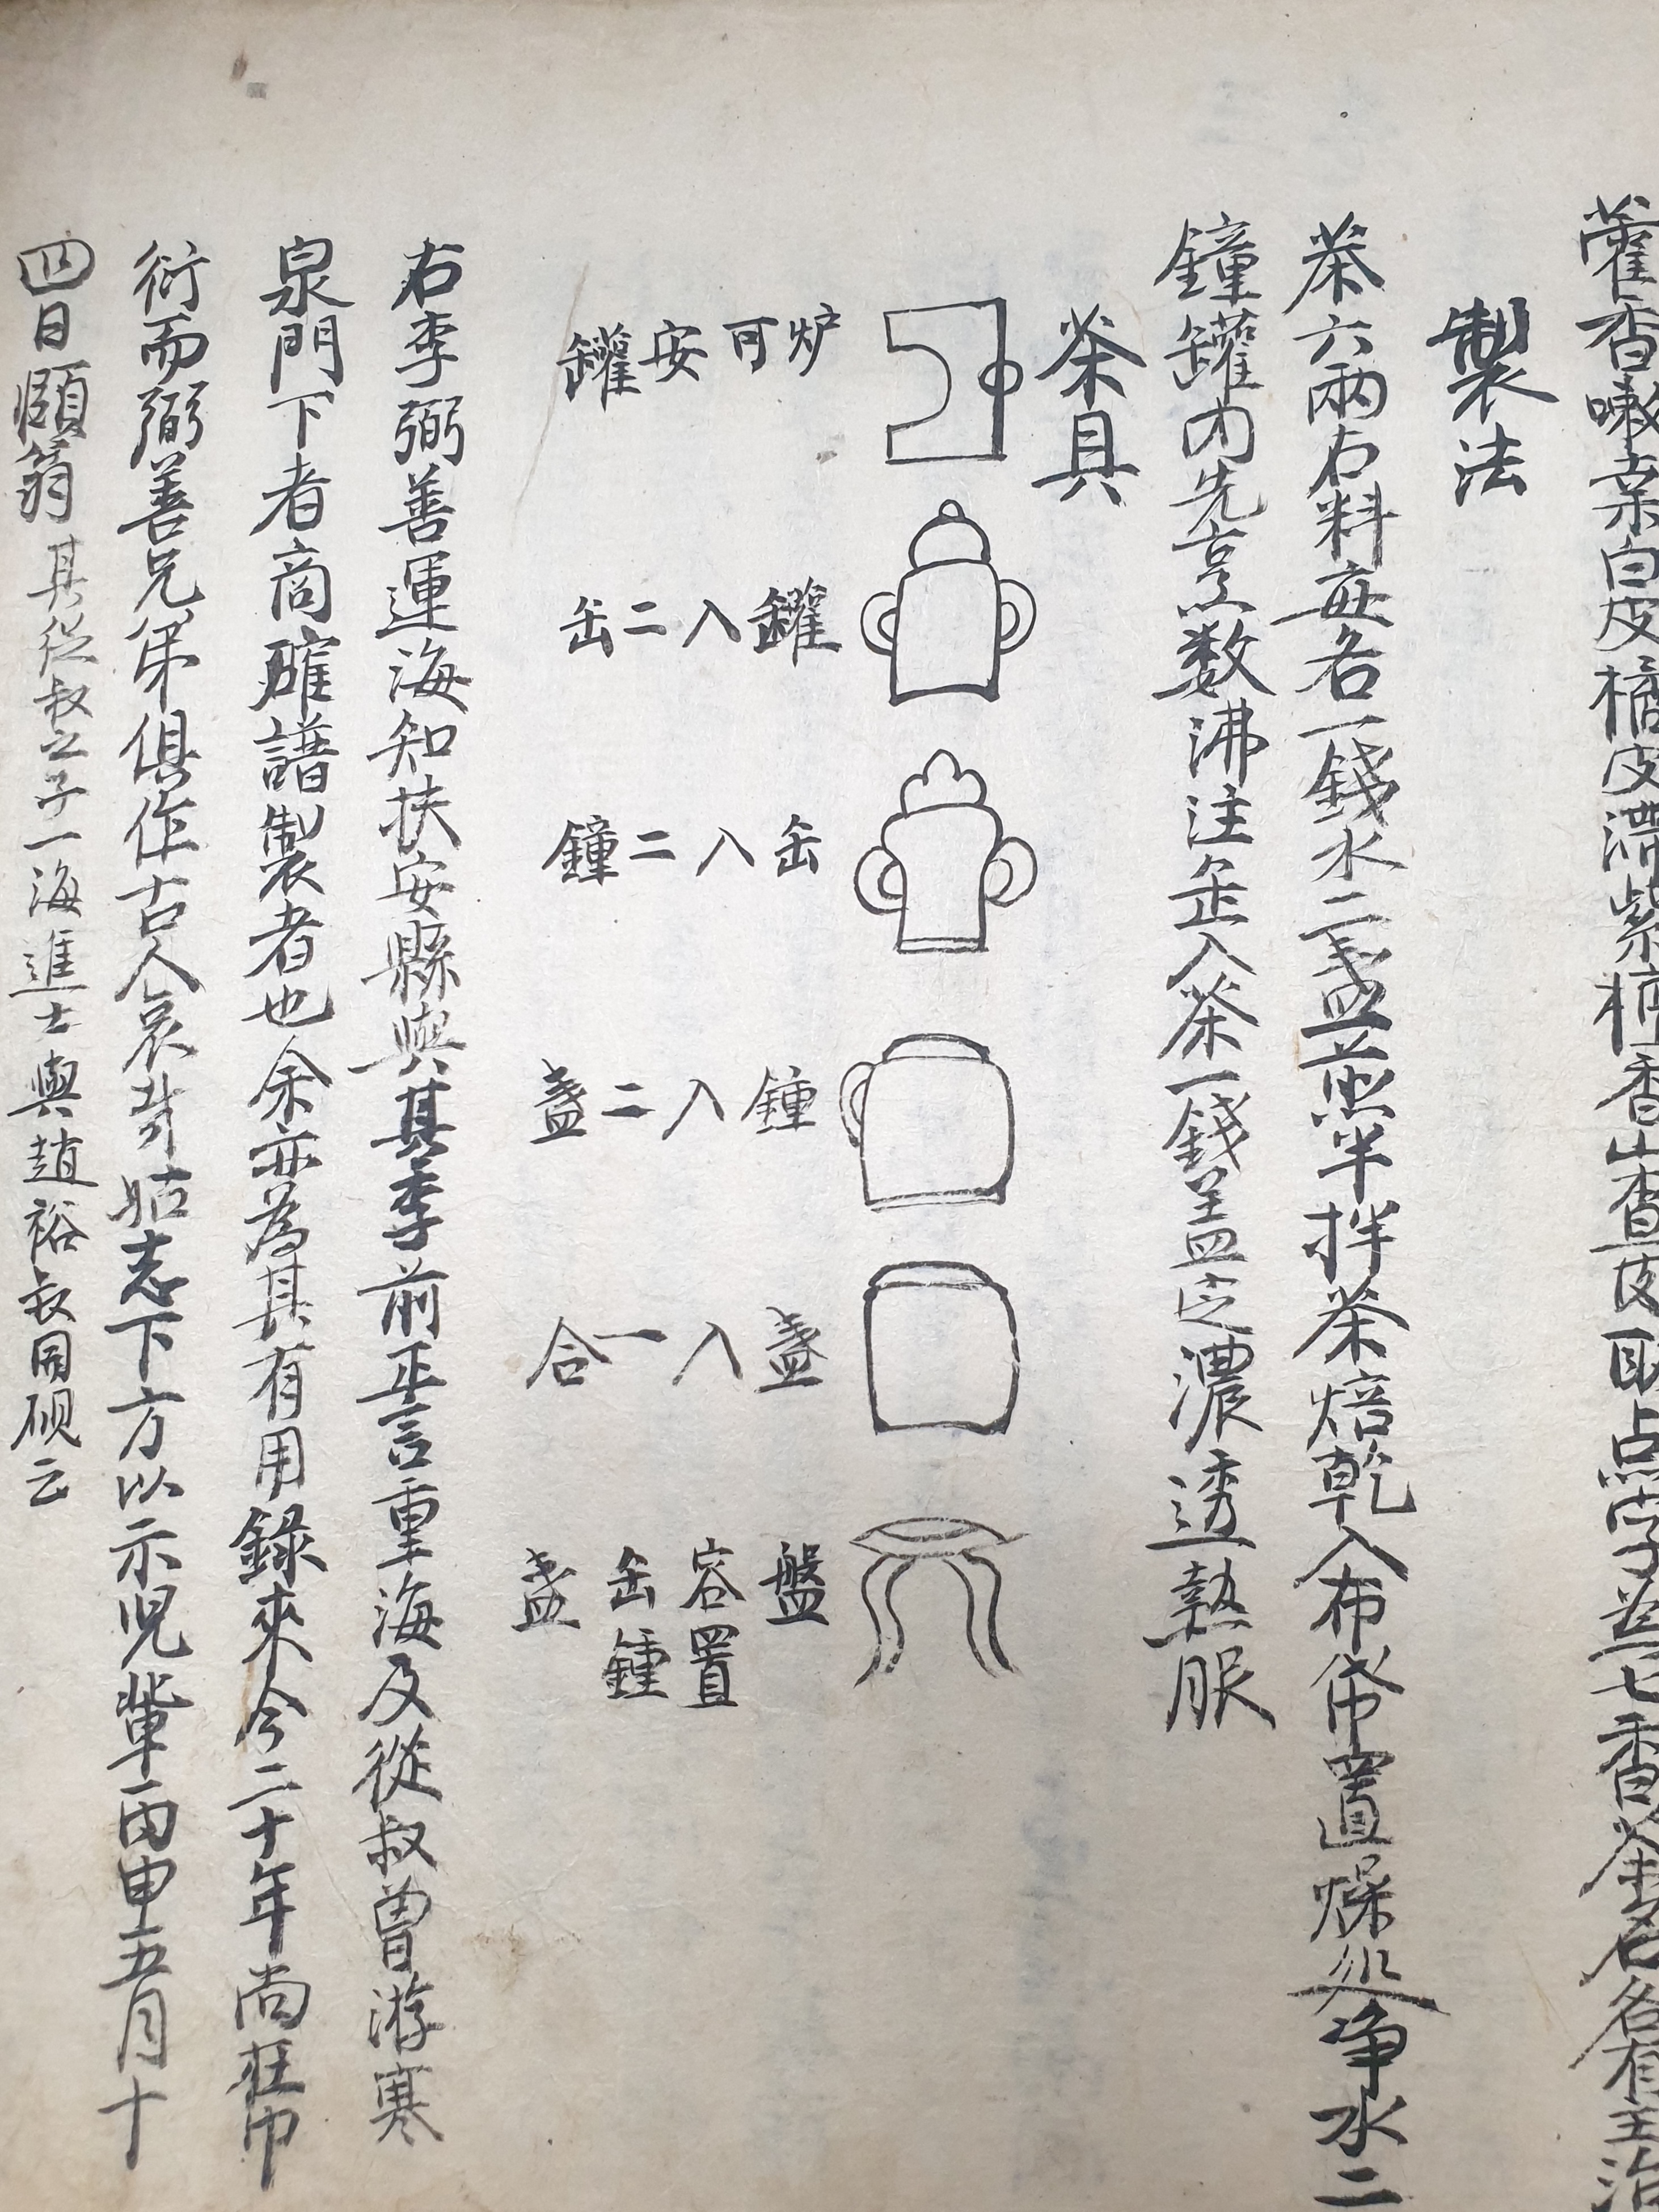 藿香嗽桒白皮橘皮滯紫檀香山査皮取点字為七香茶各有主治
製法
茶六兩右料每各一錢水二盞煎半拌茶焙乾入布帒置燥処净水二
鐘罐内先烹数沸注缶入茶一錢盖之濃透熱服
茶具
炉可安罐
罐入二缶
缶入二鐘
鍾入二盞
盞入一合
盤容置缶鍾盞
右李弼善運海知扶安縣與其季前正言重海及從叔曾游寒
泉門下者商確譜製者也余亦為其有用錄來今二十年尚在巾
衍而弼善兄弟俱作古人哀哉姑志下方以示児輩丙申五月十
四日頤翁 其從叔之子一海進士與趙裕叔同硯云